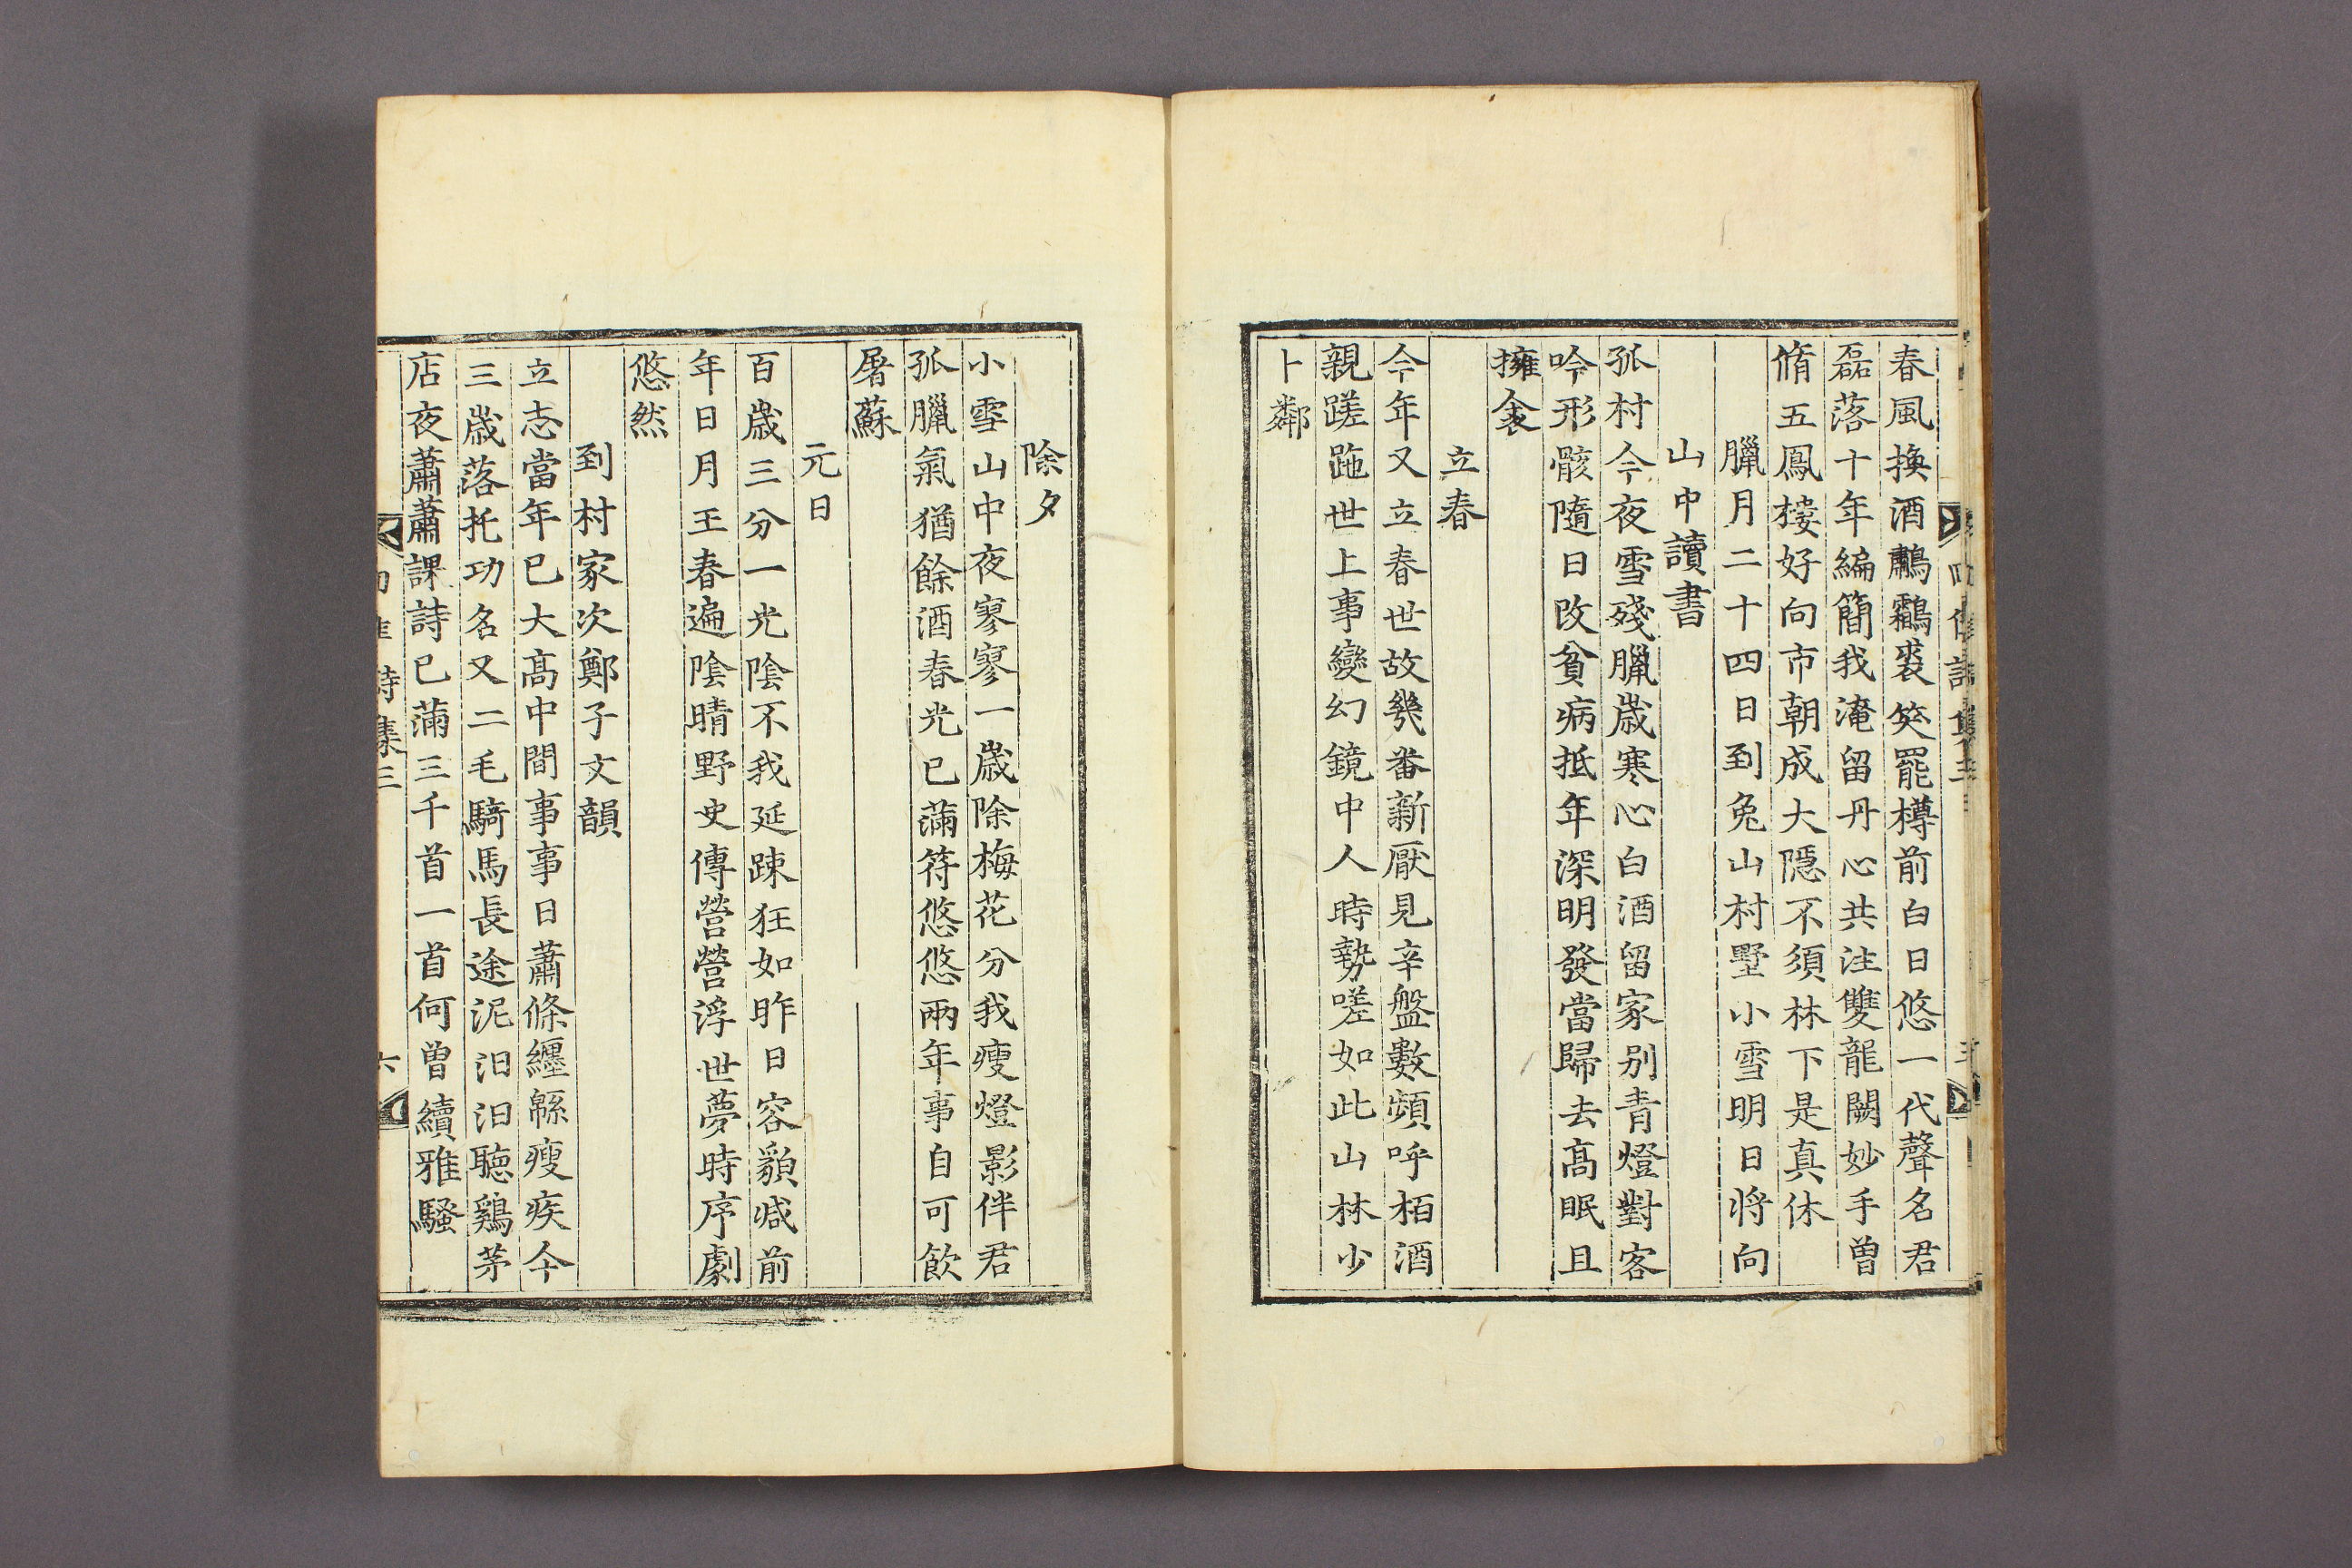 春風換酒鷫鸘裘笑罷樽前白日悠一代聲名君
磊落十年編簡我淹留丹心共注雙龍闕妙手曾
脩五鳳樓好向市朝成大隱不須林下是真休
臘月二十四日到兔山村墅小雪明日將向
山中讀書
孤村今夜雪殘臘歲寒心白酒留家别青燈對客
吟形骸隨日改貧病抵年深明發當歸去高眠且
擁衾
立春
今年又立春世故幾番新厭見辛盤數頻呼栢酒
親蹉跎世上事變幻鏡中人時勢嗟如此山林少
卜鄰
除夕
小雪山中夜寥寥一歲除梅花分我瘦燈影伴君
孤臘氣猶餘酒春光已滿符悠悠兩年事自可飮
屠蘇
元日
百歲三分一光陰不我延踈狂如昨日容貌减前
年日月王春遍陰晴野史傳營營浮世夢時序劇
悠然
到村家次鄭子文韻
立志當年已大高中間事事日蕭條纏緜瘦疾今
三歲落托功名又二毛騎馬長途泥汩汩聽鷄茅
店夜蕭蕭課詩已滿三千首一首何曾續雅騷
詩集三
六